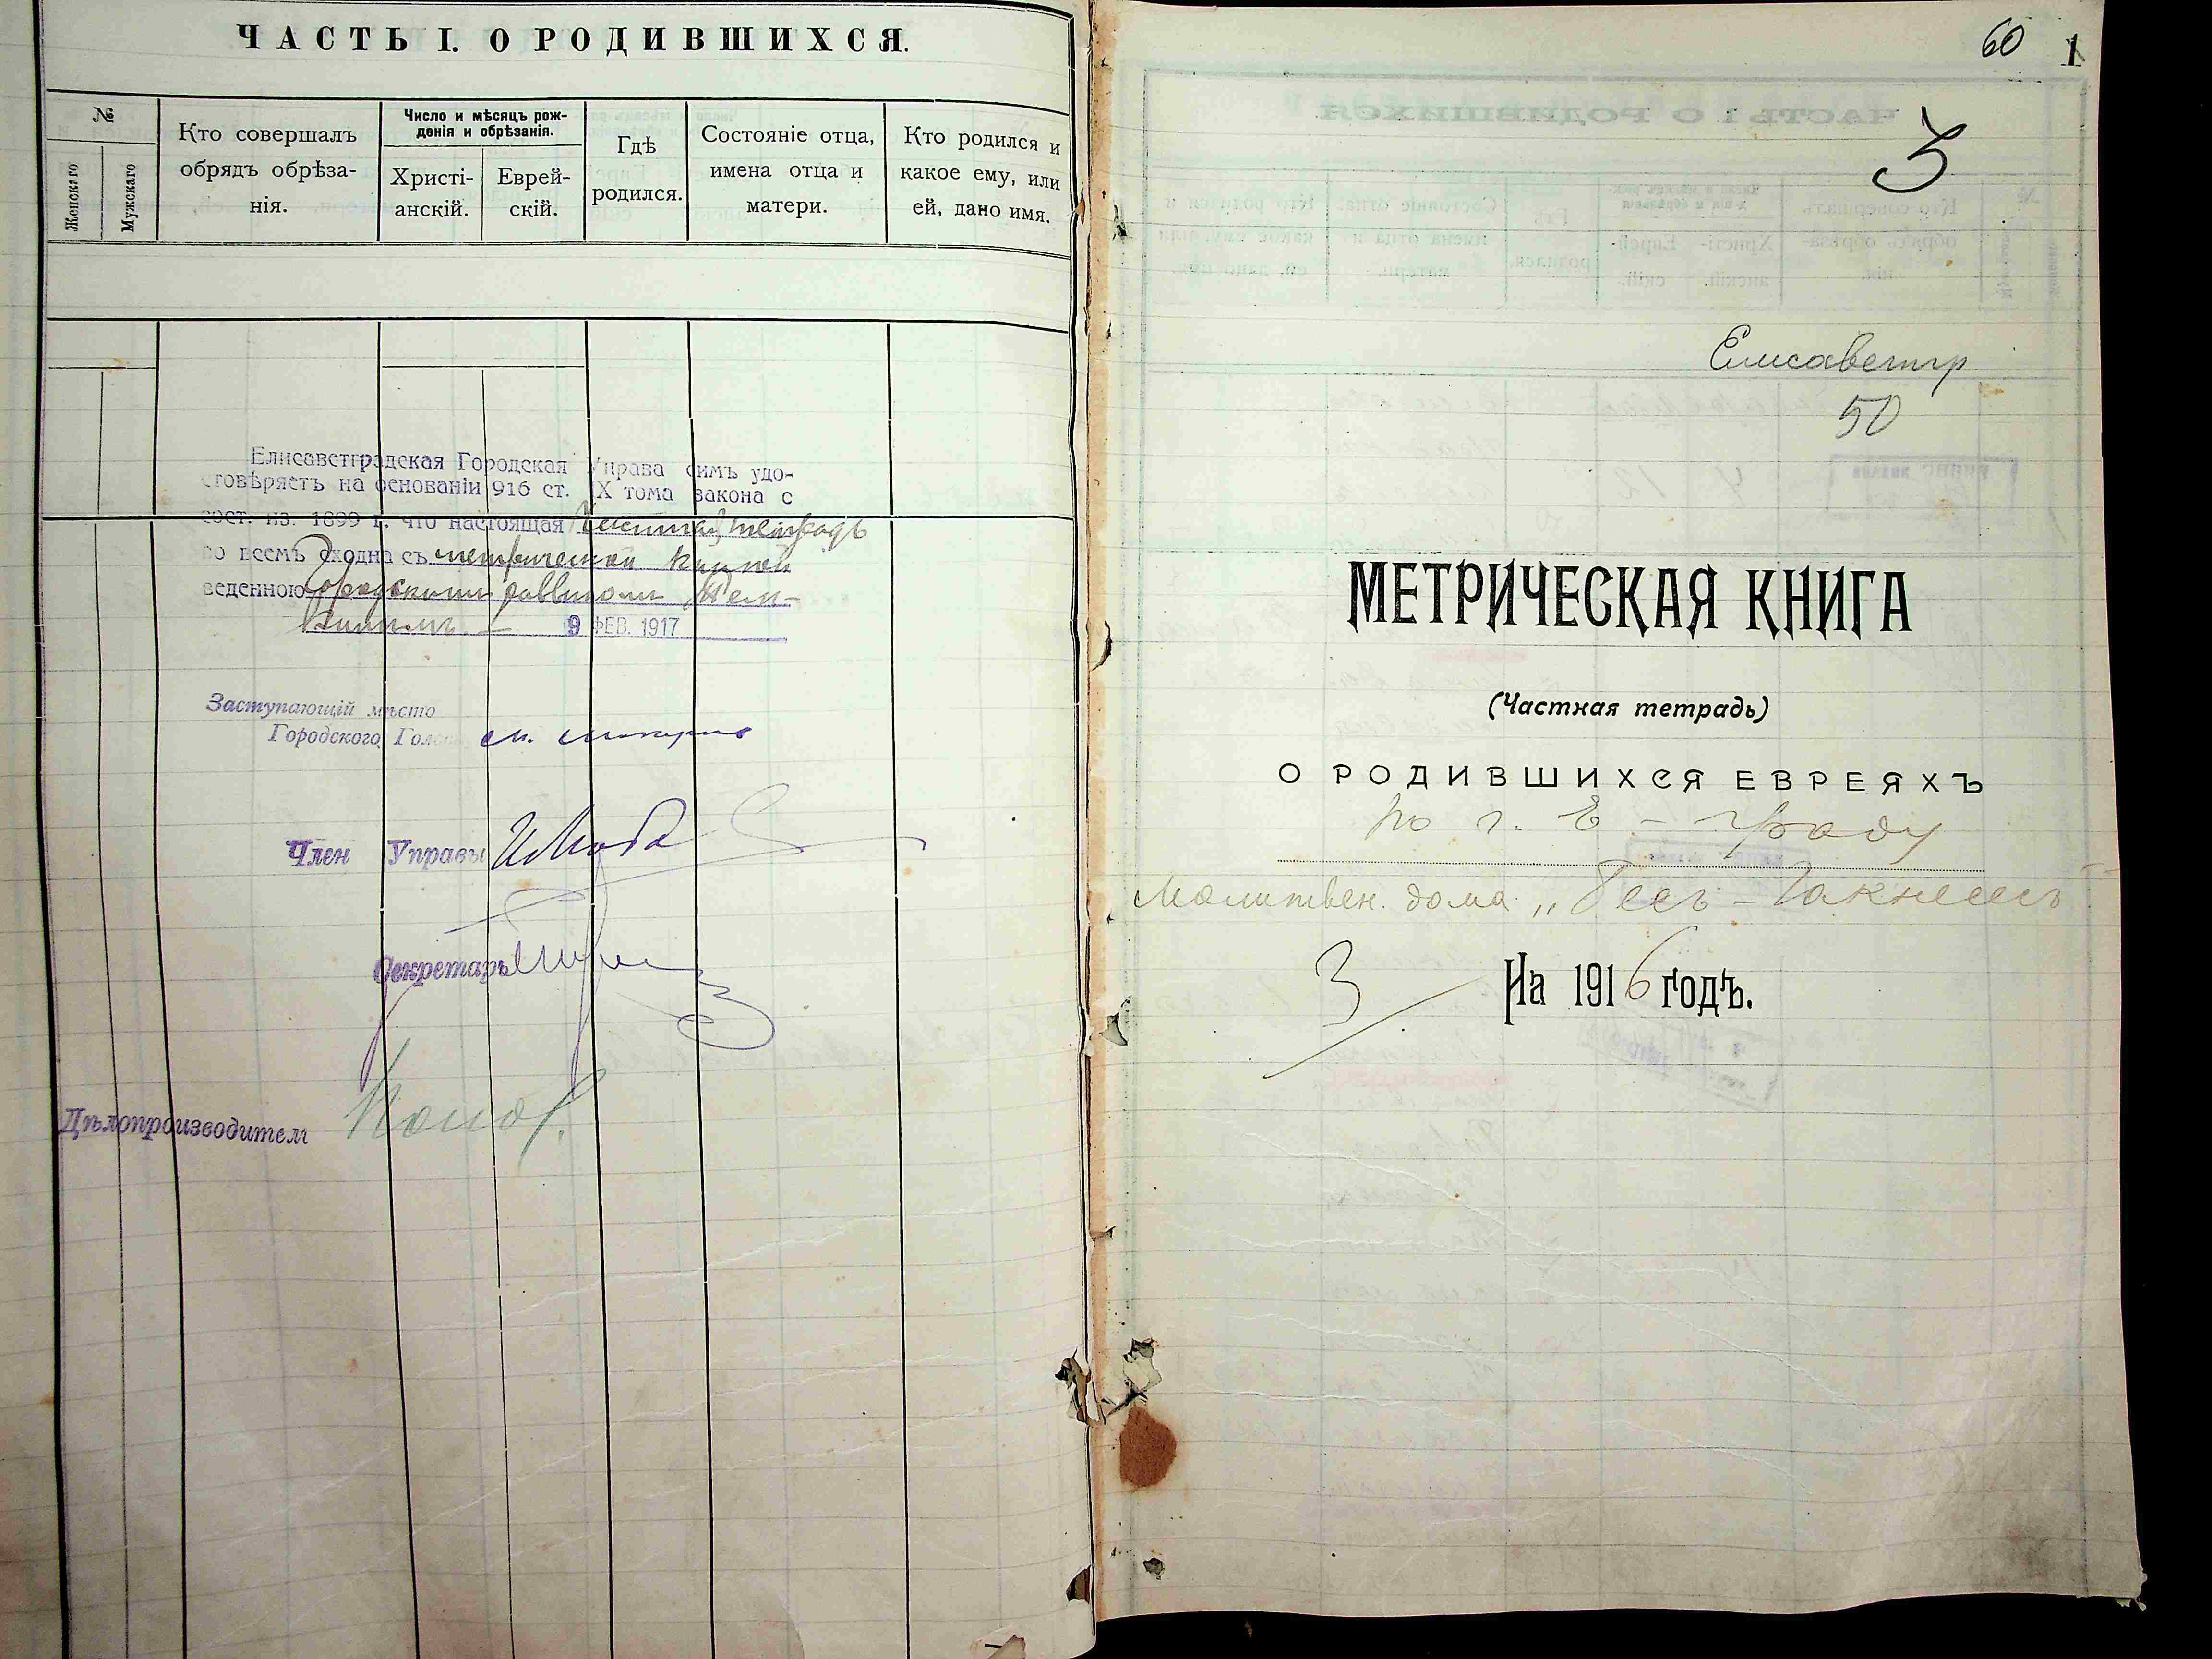 ЧАСТЬ I. О РОДИВШИХСЯ.
№
Женскаго
Мужскаго
Кто совершалъ
обрядъ обрѣза-
нія.
Число и мѣсяцъ рож-
денія и обрѣзанія.
Христі-
анскій.
Еврей-
скій.
Гдѣ
родился.
Состояніе отца,
имена отца и
матери.
Кто родился и
какое ему, или
ей, дано имя.
Елисаветградская Городская Управа симъ удо-
стовѣряетъ на основаніи 916 ст. IX тома закона о
сост. из. 1899 г. что настоящая частная тетрадь
во всемъ сходна съ метрической книгой
веденною Городскимъ раввиномъ
9 ФЕВ. 1917
Заступающій мѣсто
Городского Головы
Член Управы
Секретарь
Дѣлопроизводитель
60 1
3
Елисаветгр
50
МЕТРИЧЕСКАЯ КНИГА
(Частная тетрадь)
О РОДИВШИХСЯ ЕВРЕЯХЪ
по г. Е-граду
Молитвен. дома „Бесъ-Гакнесесъ"
3 На 1916 годъ.